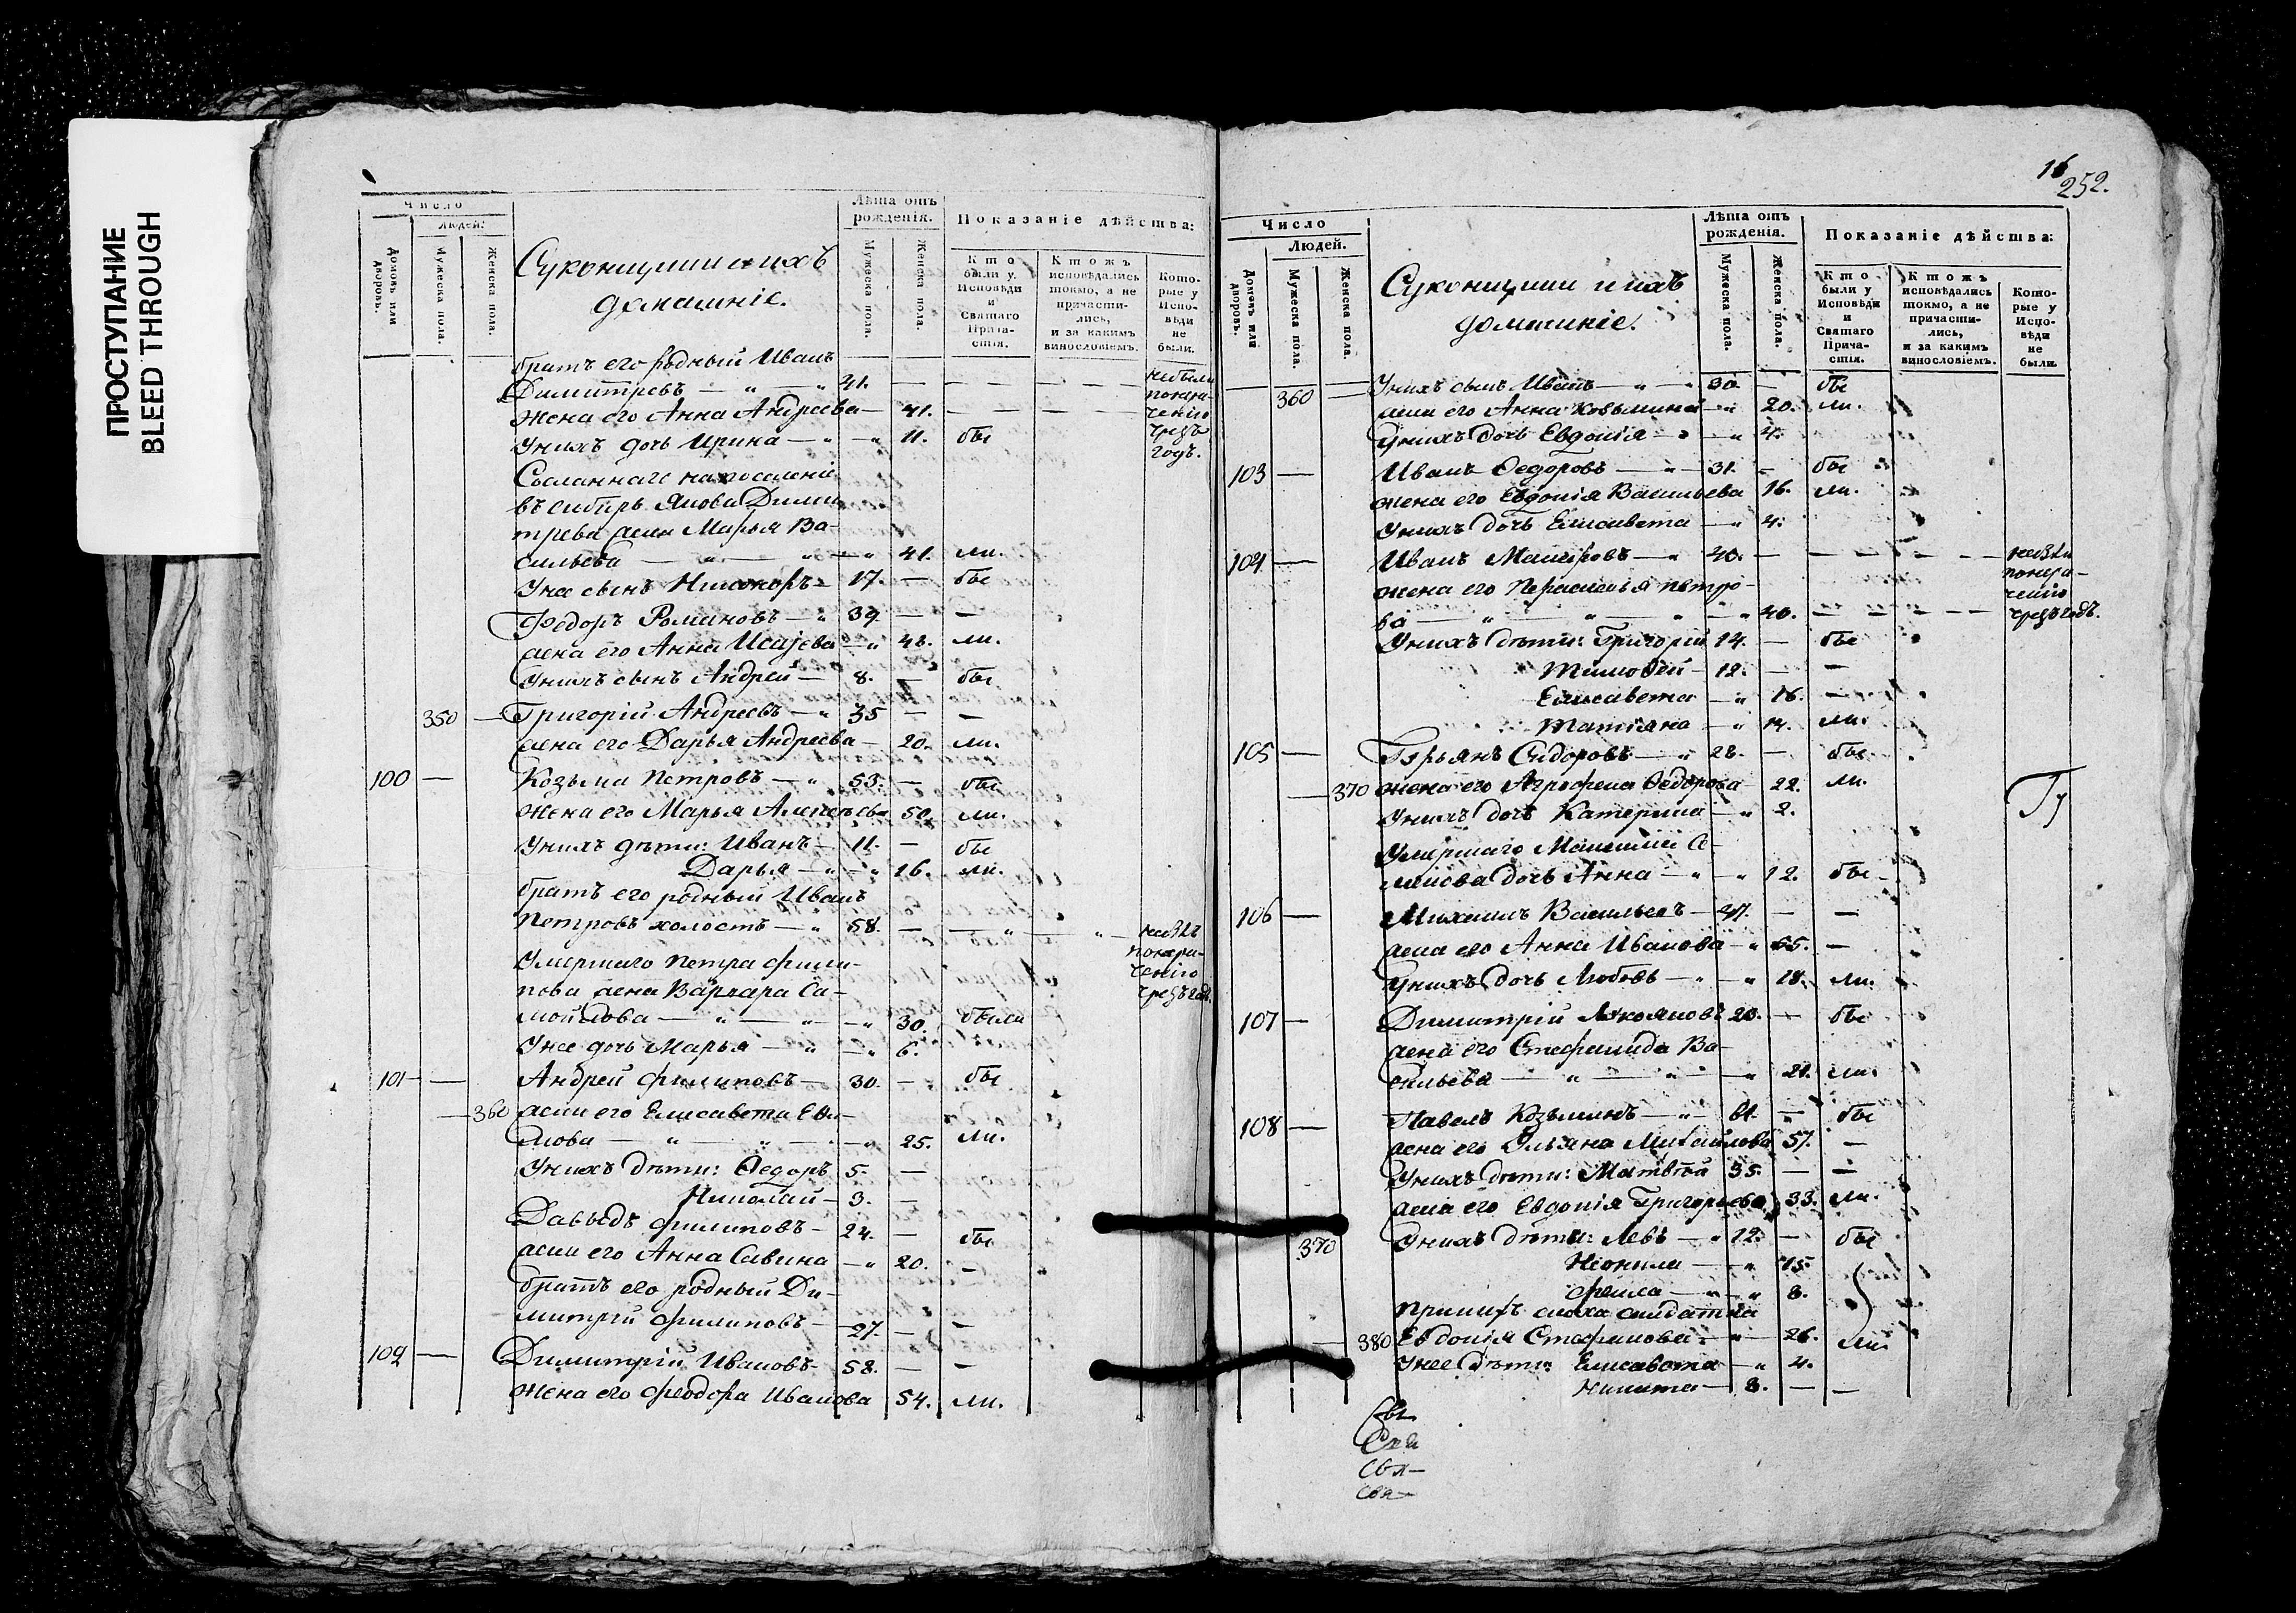 ПРОСТУПАНИЕ
BLEED THROUGH
Число
Людей:
Домовъ или дворовъ.
Мужеска пола.
Женска пола.
Суконщики и ихъ
домашніе.
Лѣта отъ рожденія.
Мужеска пола.
Женска пола.
Показаніе дѣйства:
Кто были у Исповѣди и Святаго Прича- стія.
Ктожъ исповѣдались токмо, а не причасти- лись, и за какимъ винословіемъ.
Кото- рые у Испо- вѣди не были.
братъ его родный Иванъ
Димитревъ — 41. — — — — — небыли
жена его Анна Андреева — 41. — — — —
Унихъ дочь Ирина — 11. бы чрезъ
годъ.
Сосланнаго на поселеніе
въ сибирь Якова Дими
трева жена Марья Ва-
сильева — 41. ли.
Унее сынъ Никоноръ — 17. — бы
Федоръ Романовъ — 39. — —
жена его Анна Исаjева — 48. ли.
Унихъ сынъ Андрей — 8. — бы
350 — Григорій Андреевъ — 35 — —
жена его Дарья Андреева — 20. ли.
100 — Козьма Петровъ — 53. — бы
Жена его Марья Алексѣева 50. ли.
Унихъ дѣти: Иванъ — 11. — бы
Дарья — 16. ли.
братъ его родный Иванъ
Петровъ холостъ — 58. —
Умершаго Петра Фили-
пова жена Варвара Са-
мойлова — 30. были
Унее дочь Марья — 6.
чрезъ год.
101 — — Андрей Филиповъ — 30. — бы
— 360 жена его Елисавета
— 25. ли.
Унихъ дѣти: Ѳедоръ 5. —
Николай — 3. —
Давыдъ Филиповъ — 24. — бы
жена его Анна Савина — 20. —
братъ его родный Ди-
митрій Филиповъ — 27. — —
102 — Димитрій Ивановъ — 58. — —
Жена его Феодора Иванова 54. ли.
16
252.
Число
Людей.
Домовъ или дворовъ.
Мужеска пола.
Женска пола.
Суконщики и ихъ
домашніе.
Лѣта отъ рожденія.
Мужеска пола.
Женска пола.
Показаніе дѣйства:
Кто были у Исповѣди и Святаго Прича- стія.
Ктожъ исповѣдались токмо, а не причасти- лись, и за какимъ винословіемъ.
Кото- рые у Испо- вѣди не были.
360 — Унихъ сынъ Иванъ — 30. — бы
жена его Анна Козьмина — 20. ли.
Унихъ дочь Евдокія — 4.
103 — Иванъ Ѳедоровъ — 31. — бы
жена его Евдокія Васильева 16. ли.
Унихъ дочь Елисавета — 4.
104 — Иванъ — 40. — — — —
жена его Параскевія Петро-
ва — 40. — — — — чрезъ годъ.
Унихъ дѣти: Григорій 14. — бы
Тимоѳей — 12. — —
Елисавета — 16. —
Татіяна — ли.
105 — Гурьянъ Сидоровъ — 28. — бы
— 370 жена его Агрофена Ѳедорова 22. ли.
Унихъ дочь Катерина — 2.
Умершаго
дочь Анна — 12. бы
106 — Михаилъ Васильевъ — 47. — —
жена его Анна Иванова — 65. —
Унихъ дочь Любовь — 18. ли.
107 — Димитрій 20. — бы
жена его Стефанида Ва-
сильева — 21. ли.
108 — Павелъ Козьминъ — 61. — бы
жена его Ульяна Михайлова 57. —
Унихъ дѣти: Матвѣй 35. — —
жена его Евдокія Григорьева 33. ли.
370 Унихъ дѣти: Левъ — 12. — бы
Неонила — 15.
— 8.
При нихъ сноха солдатка
— 380 Евдокія Стефанова — 26. ли.
Унее дѣти Елисавета — 4.
Никита — 8. — —